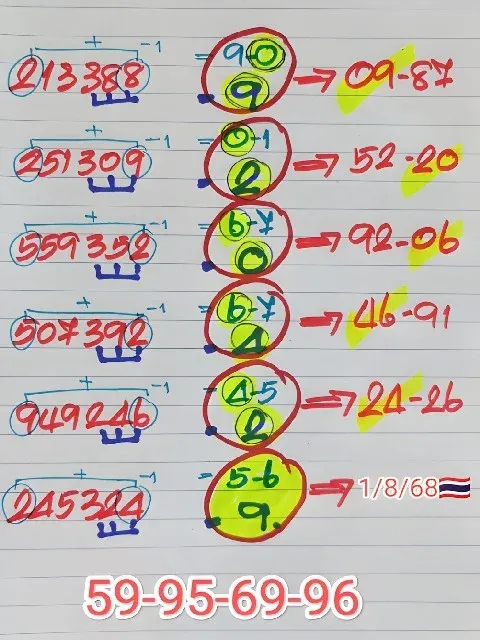 + -1
213388 = 9-0 9 → 09-87
+ -1
251309 = 0-1 2 → 52-20
+ -1
559352 = 6-7 0 → 92-06
+ -1
507392 = 6-7 4 → 46-91
+ -1
949246 = 4-5 2 → 24-26
+ -1
245324 = 5-6 9 → 1/8/68🇹🇭
59-95-69-96